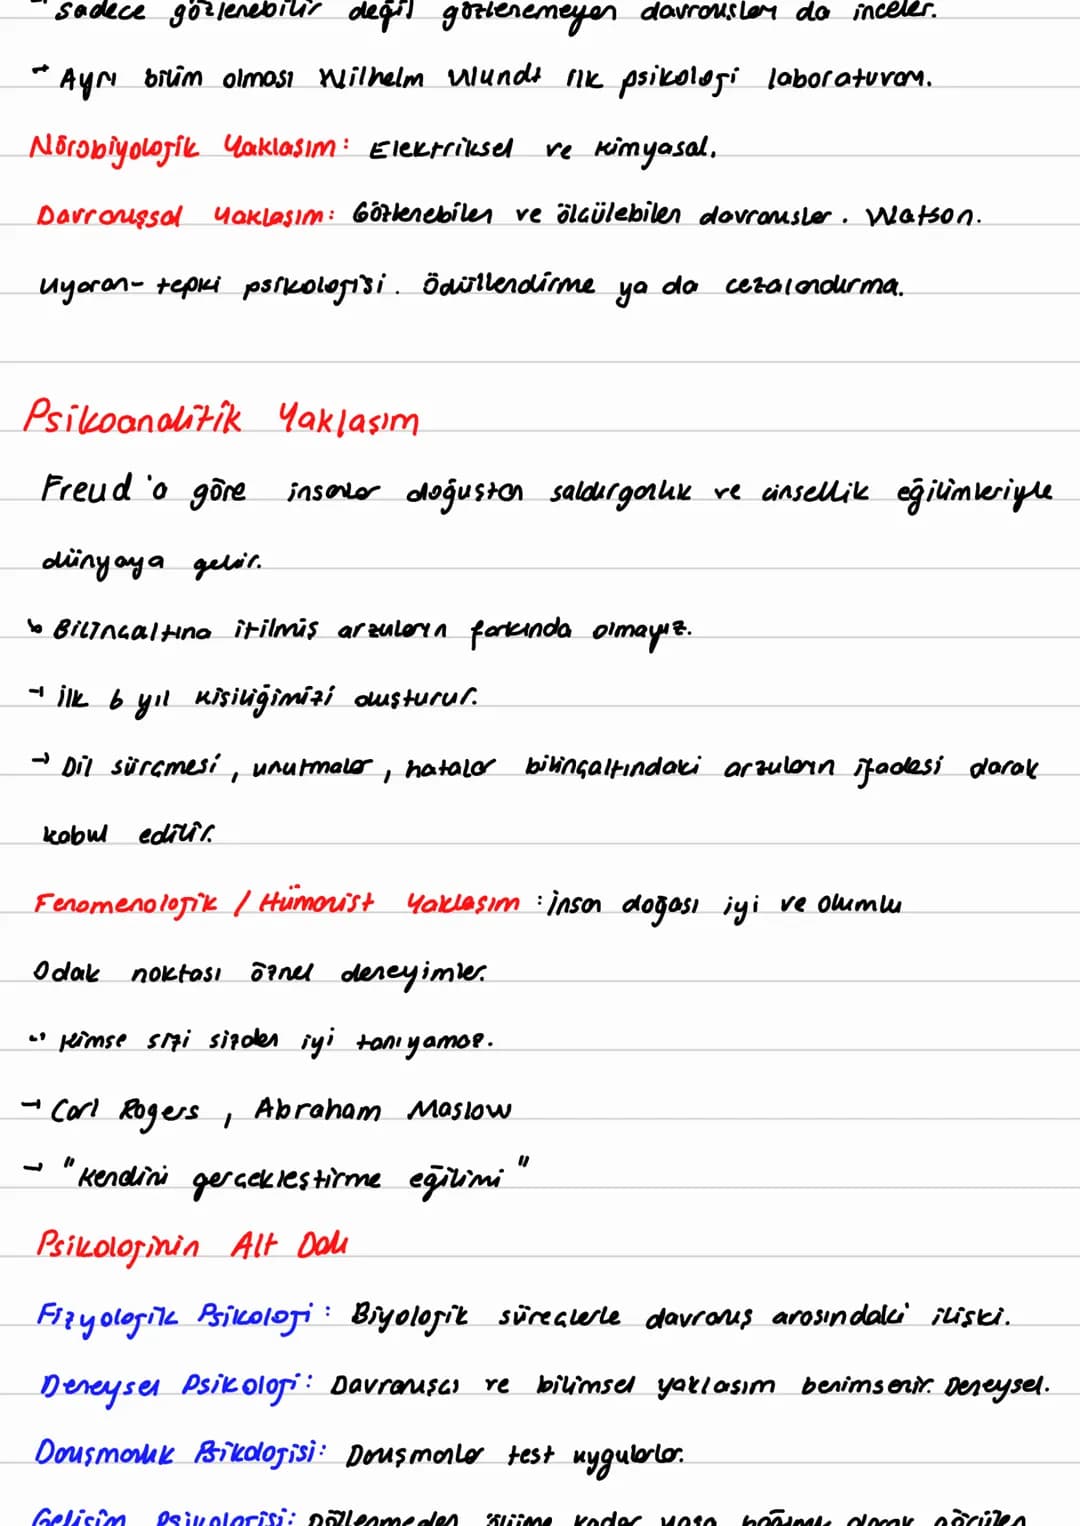 sadece gözlenebilir değil gözlenemeyen davranışları da inceler.
→ Ayrı bilim olması Wilhelm Wundt ilk psikoloji laboratuvarı.
Nörobiyolojik Yaklaşım: Elektriksel ve kimyasal.
Davranışsal Yaklaşım: Gözlenebilen ve ölçülebilen davranışlar. Watson.
Uyaran-tepki psikolojisi. Ödüllendirme ya da cezalandırma.
Psikoanalitik Yaklaşım
Freud'a göre insanlar doğuştan saldırganlık ve cinsellik eğilimleriyle
dünyaya gelir.
→ Bilinçaltına itilmiş arzuların farkında olmayız.
→ İlk 6 yıl kişiliğimizi oluşturur.
→ Dil sürçmesi, unutmalar, hatalar bilinçaltındaki arzuların ifadesi olarak
kabul edilir.
Fenomenolojik / Hümanist Yaklaşım: İnsan doğası iyi ve olumlu
Odak noktası öznel deneyimler.
→ Kimse sizi sizden iyi tanıyamaz.
→ Carl Rogers, Abraham Maslow
→ "Kendini gerçekleştirme eğilimi"
Psikolojinin Alt Dalı
Fizyolojik Psikoloji: Biyolojik süreçlerle davranış arasındaki ilişki.
Deneysel Psikoloji: Davranışçı ve bilimsel yaklaşım benimsenir. Deneysel.
Danışmanlık Psikolojisi: Danışmanlar test uygularlar.
Gelişim Psikolojisi: Döllenmeden ölüme kadar yaşa bağımlı olarak görülen